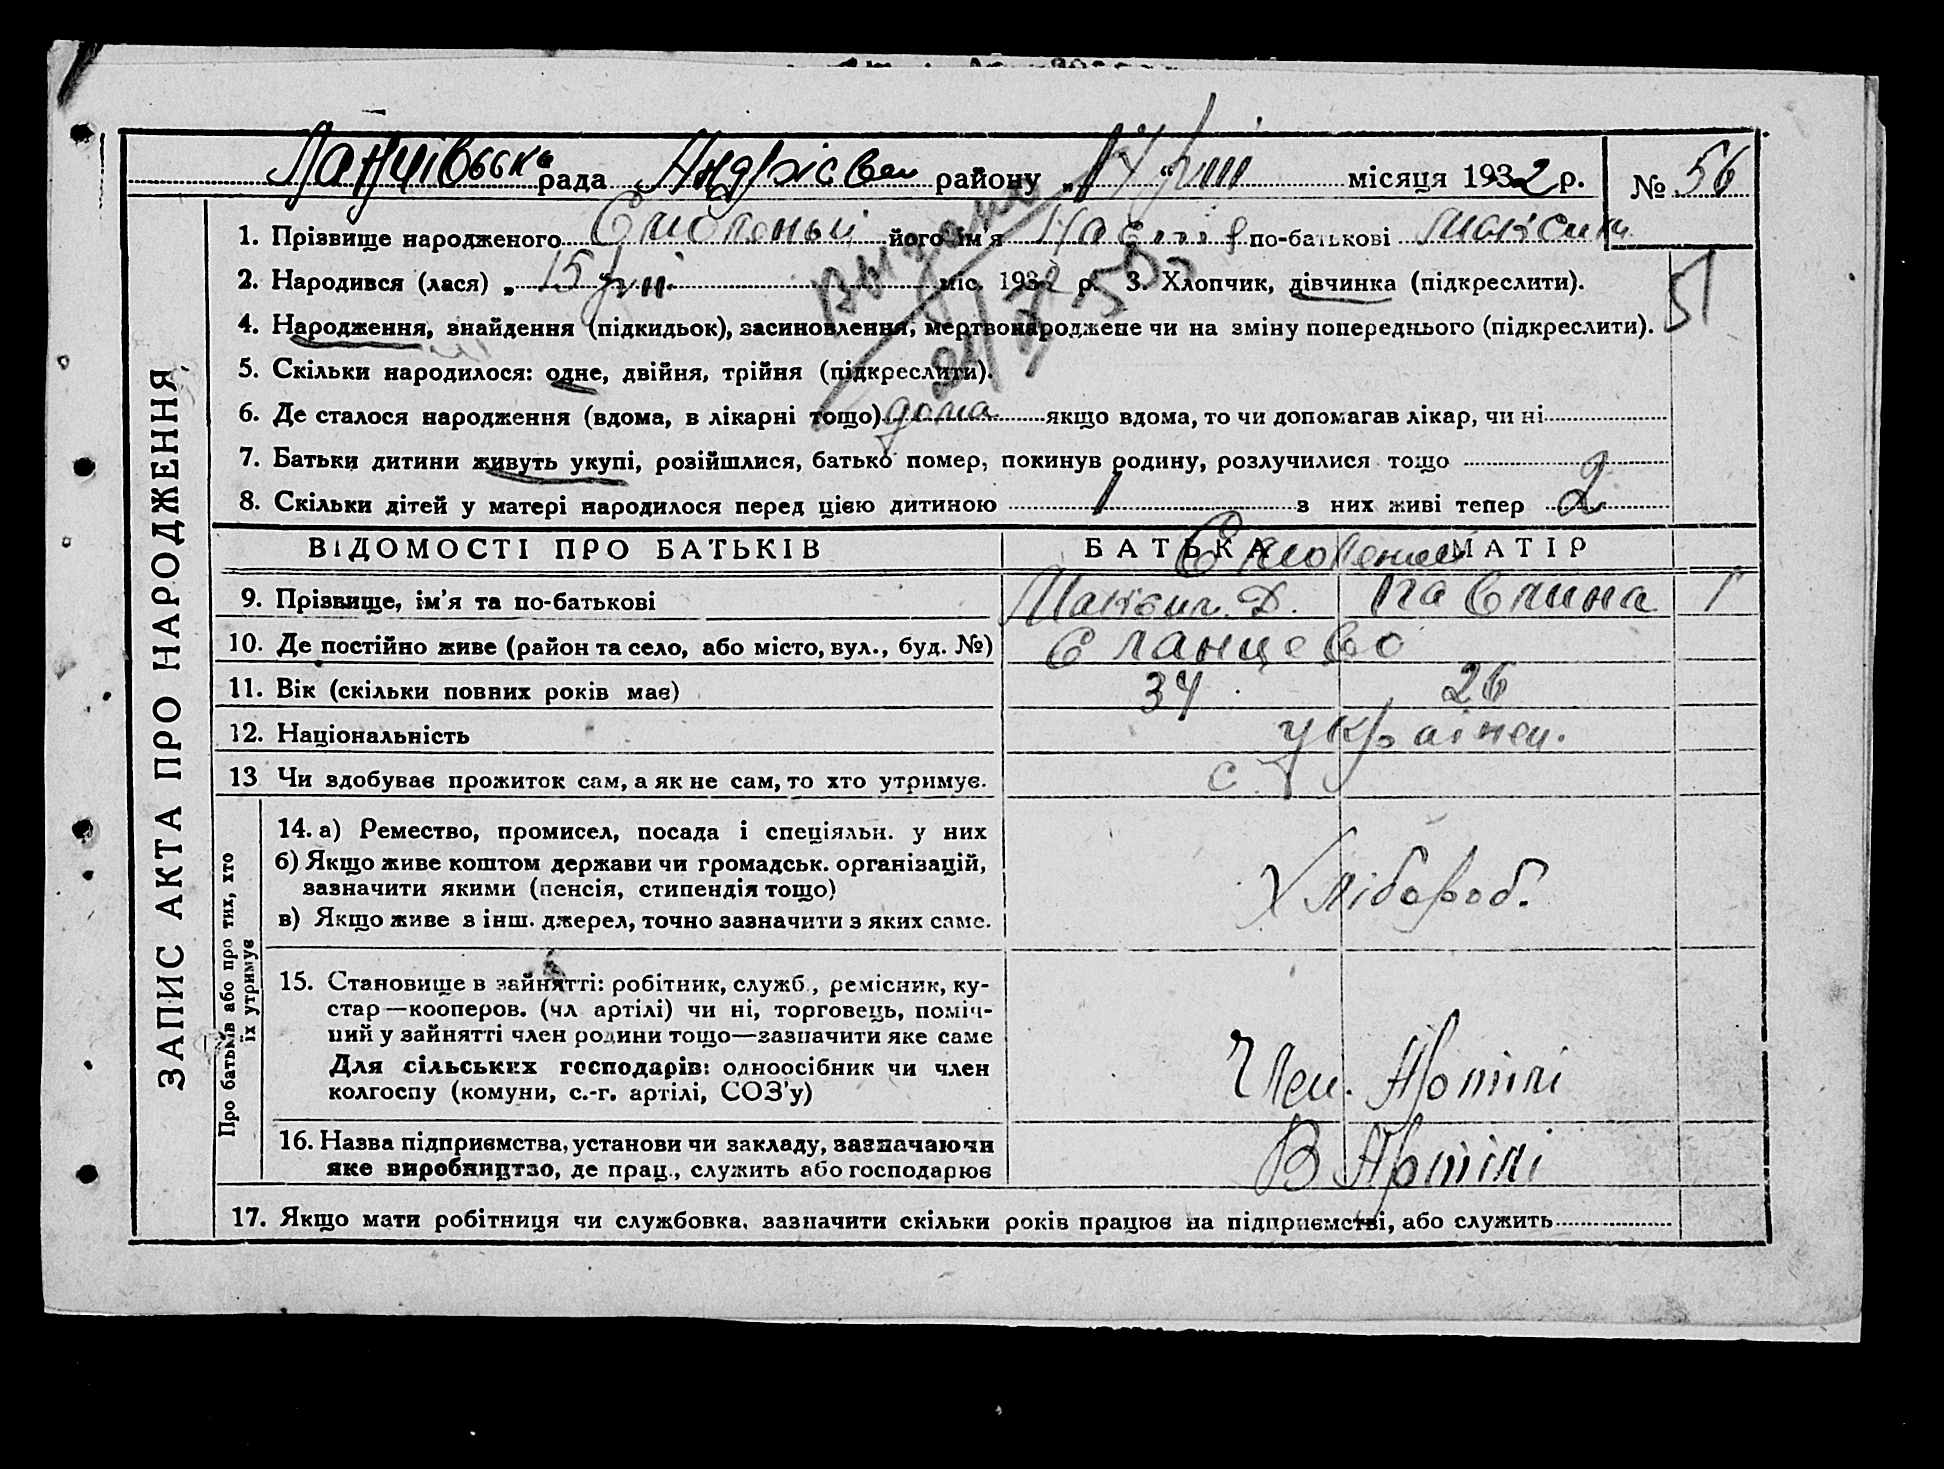 Ланцівська рада Андріевсь району „17/VIII“ місяця 1932 р. № 56
1. Прізвище народженого його ім'я по-батькові Максим
2. Народився (лася) „15 міс. 1932 р. 3. Хлопчик, дівчинка (підкреслити).
4. Народження, знайдення (підкидьок), засиновлення, мертвонароджене чи на зміну попереднього (підкреслити).
5. Скільки народилося: одне, двійня, трійня (підкреслити).
6. Де сталося народження (вдома, в лікарні тощо) дома якщо вдома, то чи допомагав лікар, чи ні
7. Батьки дитини живуть укупі, розійшлися, батько помер, покинув родину, розлучилися тощо
8. Скільки дітей у матері народилося перед цією дитиною 1 з них живі тепер 2
Выдано
ЗАПИС АКТА ПРО НАРОДЖЕННЯ
ВІДОМОСТІ ПРО БАТЬКІВ БАТЬКА МАТІР
9. Прізвище, ім'я та по-батькові Максим. Д. Павлина
10. Де постійно живе (район та село, або місто, вул., буд. №) с Ланцево
11. Вік (скільки повних років має) 34 26
12. Національність українец.
13 Чи здобуває прожиток сам, а як не сам, то хто утримує. с
Про батьків або про тих, хто їх утримує
14. а) Ремество, промисел, посада і спеціяльн. у них
б) Якщо живе коштом держави чи громадськ. організацій,
зазначити якими (пенсія, стипендія тощо)
Хлібороб.
в) Якщо живе з інш. джерел, точно зазначити з яких саме.
15. Становище в зайнятті: робітник, служб., ремісник, ку-
стар—кооперов. (чл артілі) чи ні, торговець, поміч-
ний у зайнятті член родини тощо—зазначити яке саме
Для сільських господарів: одноосібник чи член
колгоспу (комуни, с.-г. артілі, СОЗ'у)
Член. Артілі
16. Назва підприємства, установи чи закладу, зазначаючи
яке виробництво, де прац., служить або господарює
В Артілі
17. Якщо мати робітниця чи службовка, зазначити скільки років працює на підприємстві, або служить